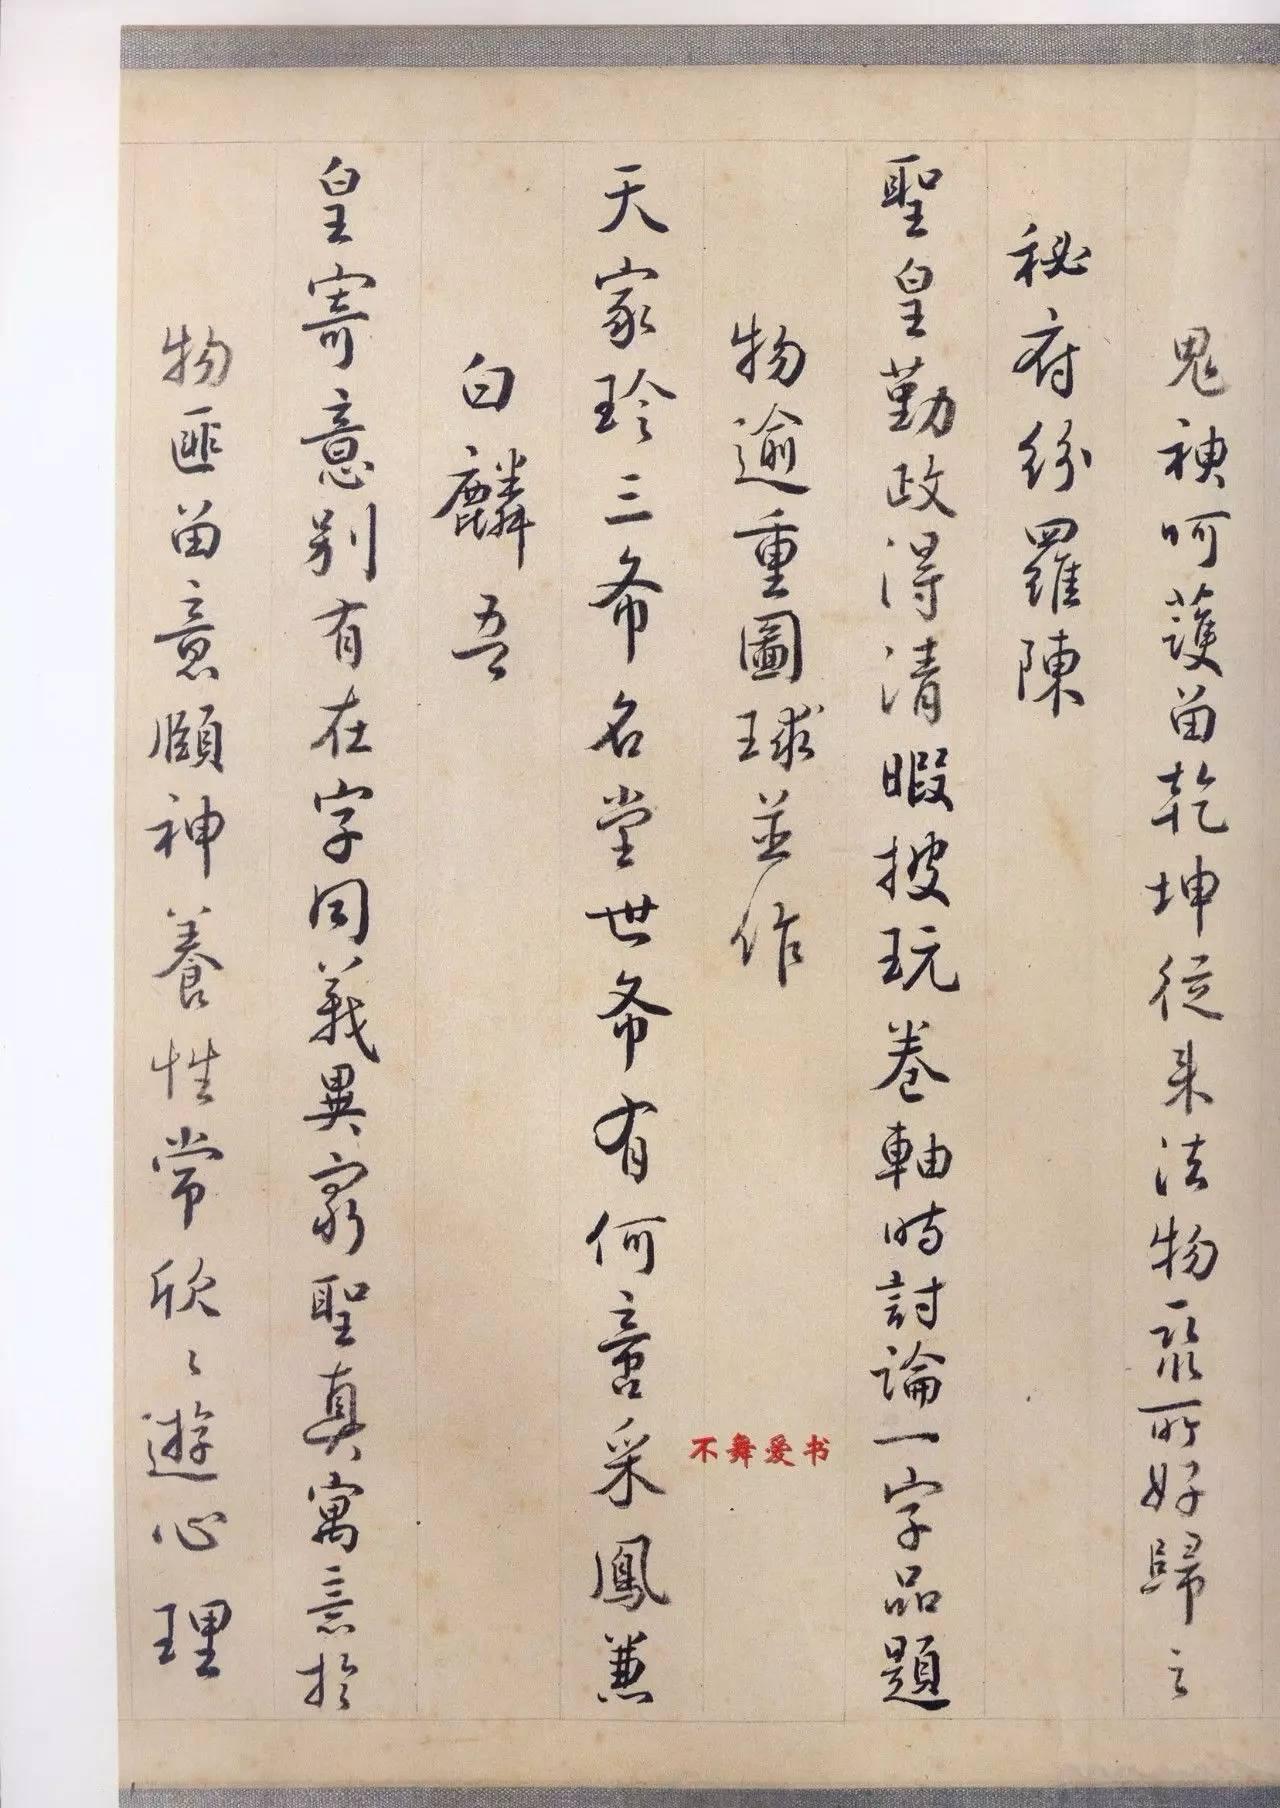 鬼神呵護留乾坤從来法物聚所好歸之
秘府紛羅陳
聖皇勤政得清暇披玩卷軸時討論一字品題
物逾重圖球並作
天家珍三希名堂世希有何啻采鳳兼
白麟吾
皇寄意别有在字同義異窮聖真寓意於
物匪留意頤神養性常欣〻遊心理
不舞爱书